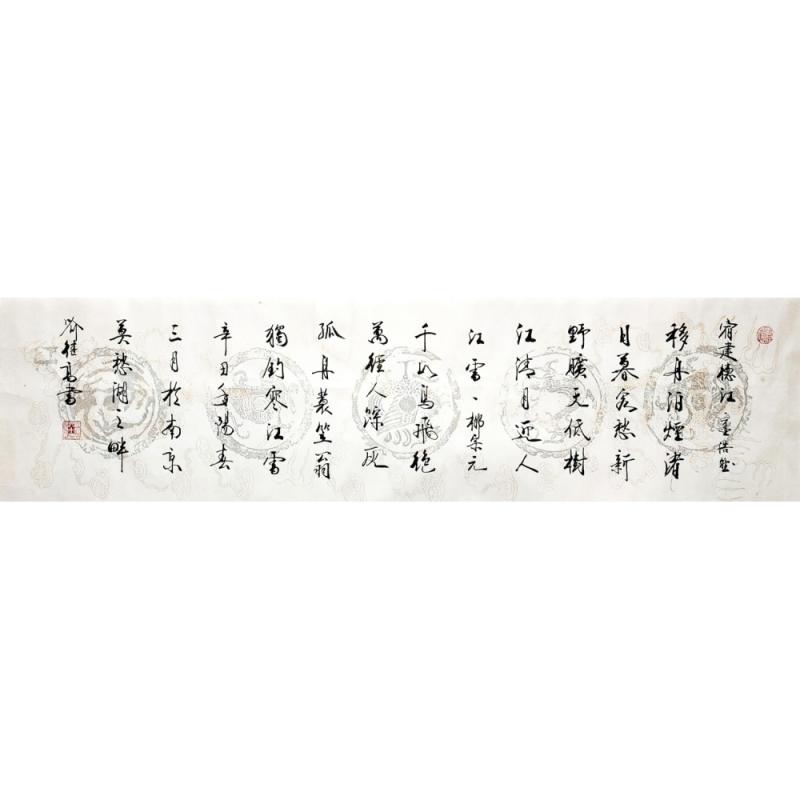 宿建德江 孟浩然
移舟泊煙渚
日暮客愁新
野曠天低樹
江清月近人
江雪、柳宗元
千山鳥飛絕
萬徑人踪灭
孤舟蓑笠翁
獨釣寒江雪
辛丑年陽春
三月於南京
莫愁湖之畔
高書